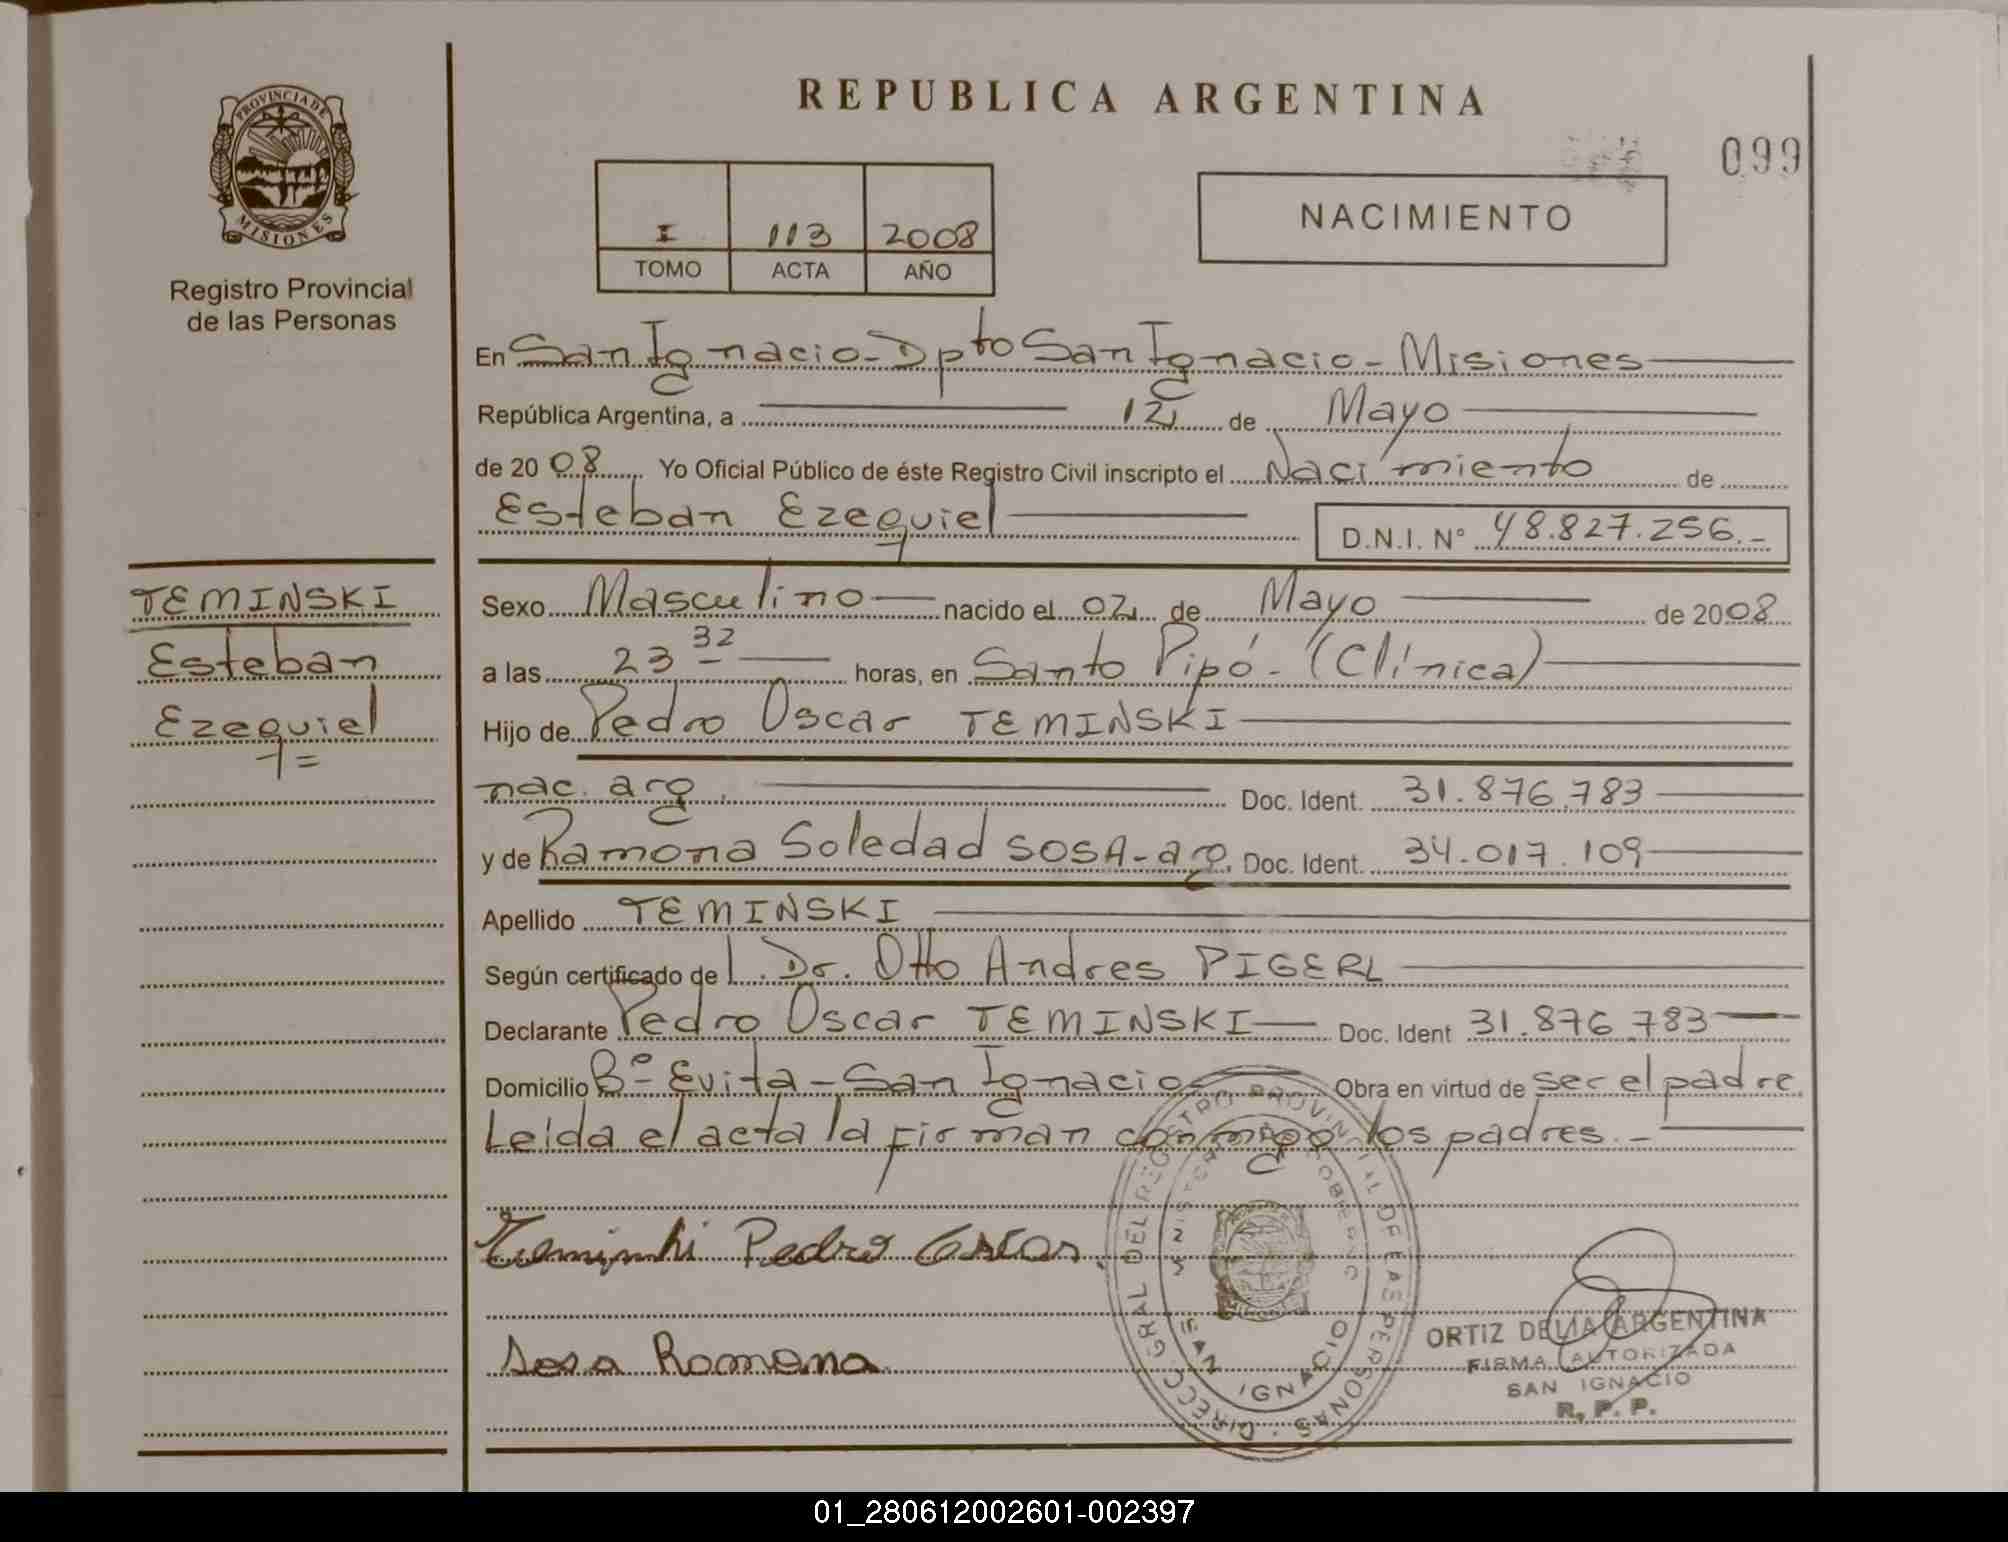 PROVINCIA DE
MISIONES
Registro Provincial
de las Personas
REPUBLICA ARGENTINA
099
I 113 2008
TOMO ACTA AÑO
NACIMIENTO
En San Ignacio - Dpto San Ignacio - Misiones
República Argentina, a 12 de Mayo
de 2008 Yo Oficial Público de éste Registro Civil inscripto el Nacimiento de
Esteban Ezequiel D.N.I. N° 48.827.256.-
TEMINSKI
Esteban
Ezequiel =
Sexo Masculino nacido el 02 de Mayo de 2008
a las 23 32 horas, en Santo Pipó - (Clínica)
Hijo de Pedro Oscar TEMINSKI
nac. arg. Doc. Ident. 31.876.783
y de Ramona Soledad SOSA - arg. Doc. Ident. 34.017.109
Apellido TEMINSKI
Según certificado de l. Dr. Otto Andres PIGERL
Declarante Pedro Oscar TEMINSKI Doc. Ident 31.876.783
Domicilio Bº Evita - San Ignacio Obra en virtud de ser el padre.
Leida el acta la firman conmigo los padres.-
Teminski Pedro Oscar.
Sosa Ramona
DIRECC. GRAL DEL REGISTRO PROVINCIAL DE LAS PERSONAS
MINISTERIO DE GOBIERNO
SAN IGNACIO
ORTIZ DELIA ARGENTINA
FIRMA AUTORIZADA
SAN IGNACIO
R. P. P.
01_280612002601-002397